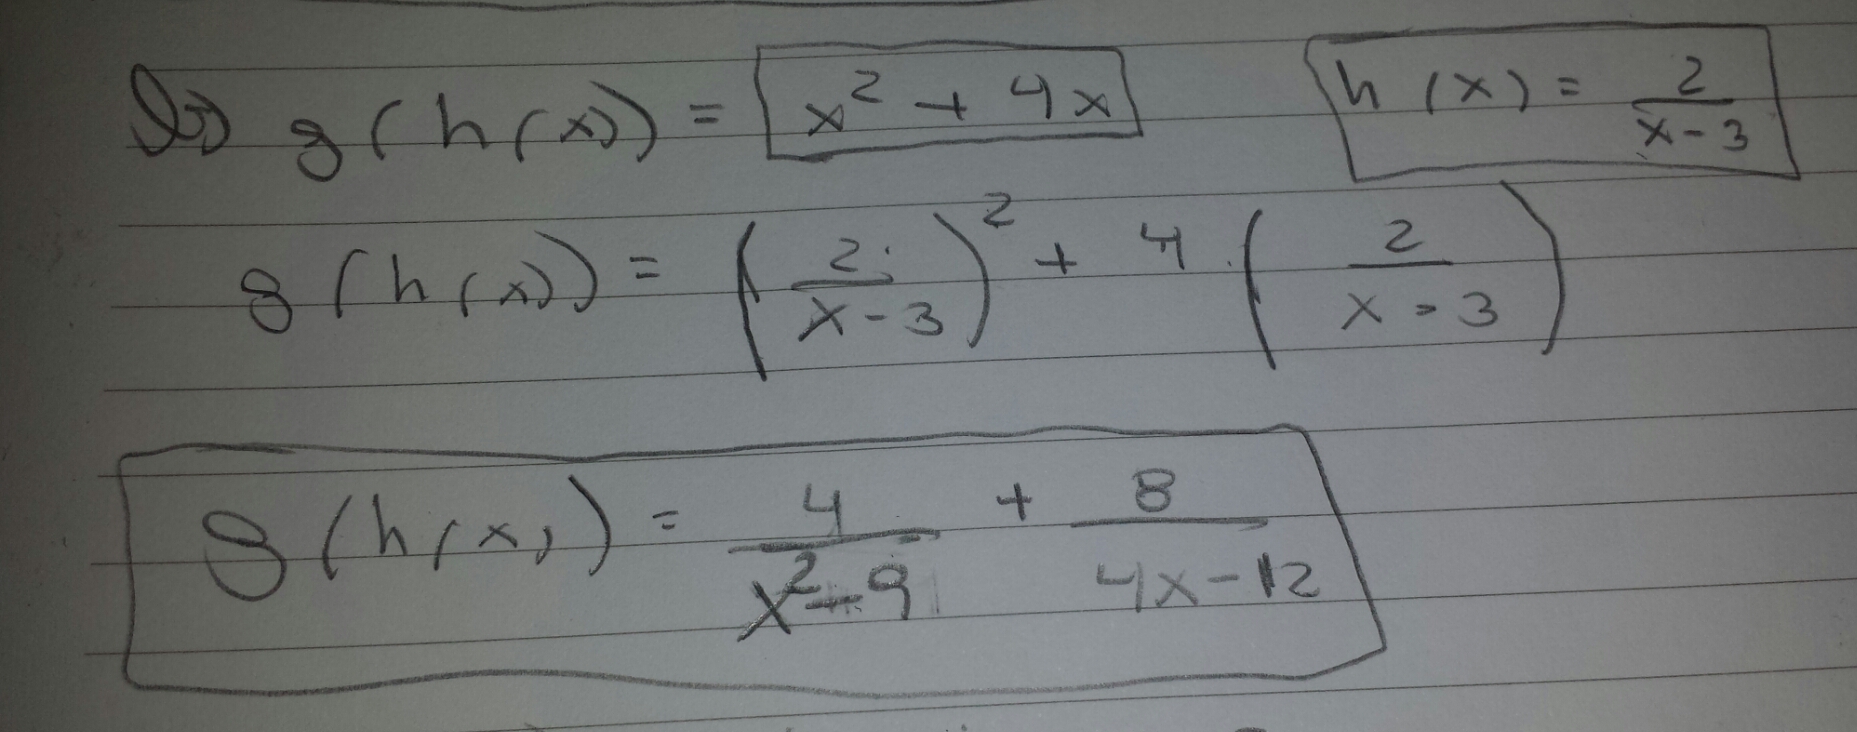 g(h(x)) = x² + 4x h(x) = 2/(x-3)
g(h(x)) = (2/(x-3))² + 4·(2/(x-3))
g(h(x)) = 4/(x²-9) + 8/(4x-12)